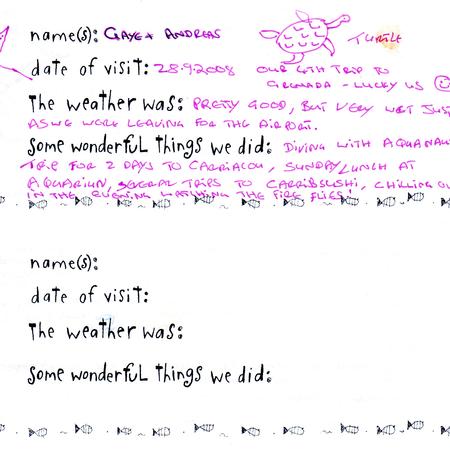 name(s): GAYE + ANDREAS
TURTLE
date of visit: 28.9.2008 OUR 4TH TRIP TO
GRENADA - LUCKY US
The weather was: PRETTY GOOD, BUT VERY WET JUST
AS WE WERE LEAVING FOR THE AIRPORT.
Some wonderful things we did: DIVING WITH AQUANAU
TRIP FOR 2 DAYS TO CARRIACOU, SUNDAY LUNCH AT
AQUARIUM, SEVERAL TRIPS TO CARRIBSUSHI, CHILLING OU
IN THE EVENING WATCHING THE FIRE FLIES!
name(s):
date of visit:
The weather was:
Some wonderful things we did: